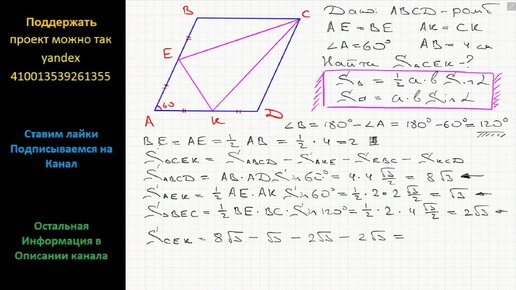 Поддержать
проект можно так
yandex
410013539261355
Ставим лайки
Подписываемся на
Канал
Остальная
Информация в
Описании канала
B
C
E
A
60
K
D
Дано: ABCD - ромб
AE = BE AK = CK
∠A = 60° AB = 4 см
Найти S△CEK - ?
S△ = 1/2 a·b Sin L
S▱ = a·b Sin L
∠B = 180° - ∠A = 180° - 60° = 120°
BE = AE = 1/2 AB = 1/2 · 4 = 2
S△CEK = SABCD - SAKE - SEBC - SKCD
SABCD = AB·AD Sin 60° = 4·4 √3/2 = 8√3
SAEK = 1/2 AE·AK Sin 60° = 1/2 · 2·2 √3/2 = √3
S△BEC = 1/2 BE·BC·Sin 120° = 1/2 · 2·4 √3/2 = 2√3
SCEK = 8√3 - √3 - 2√3 - 2√3 =